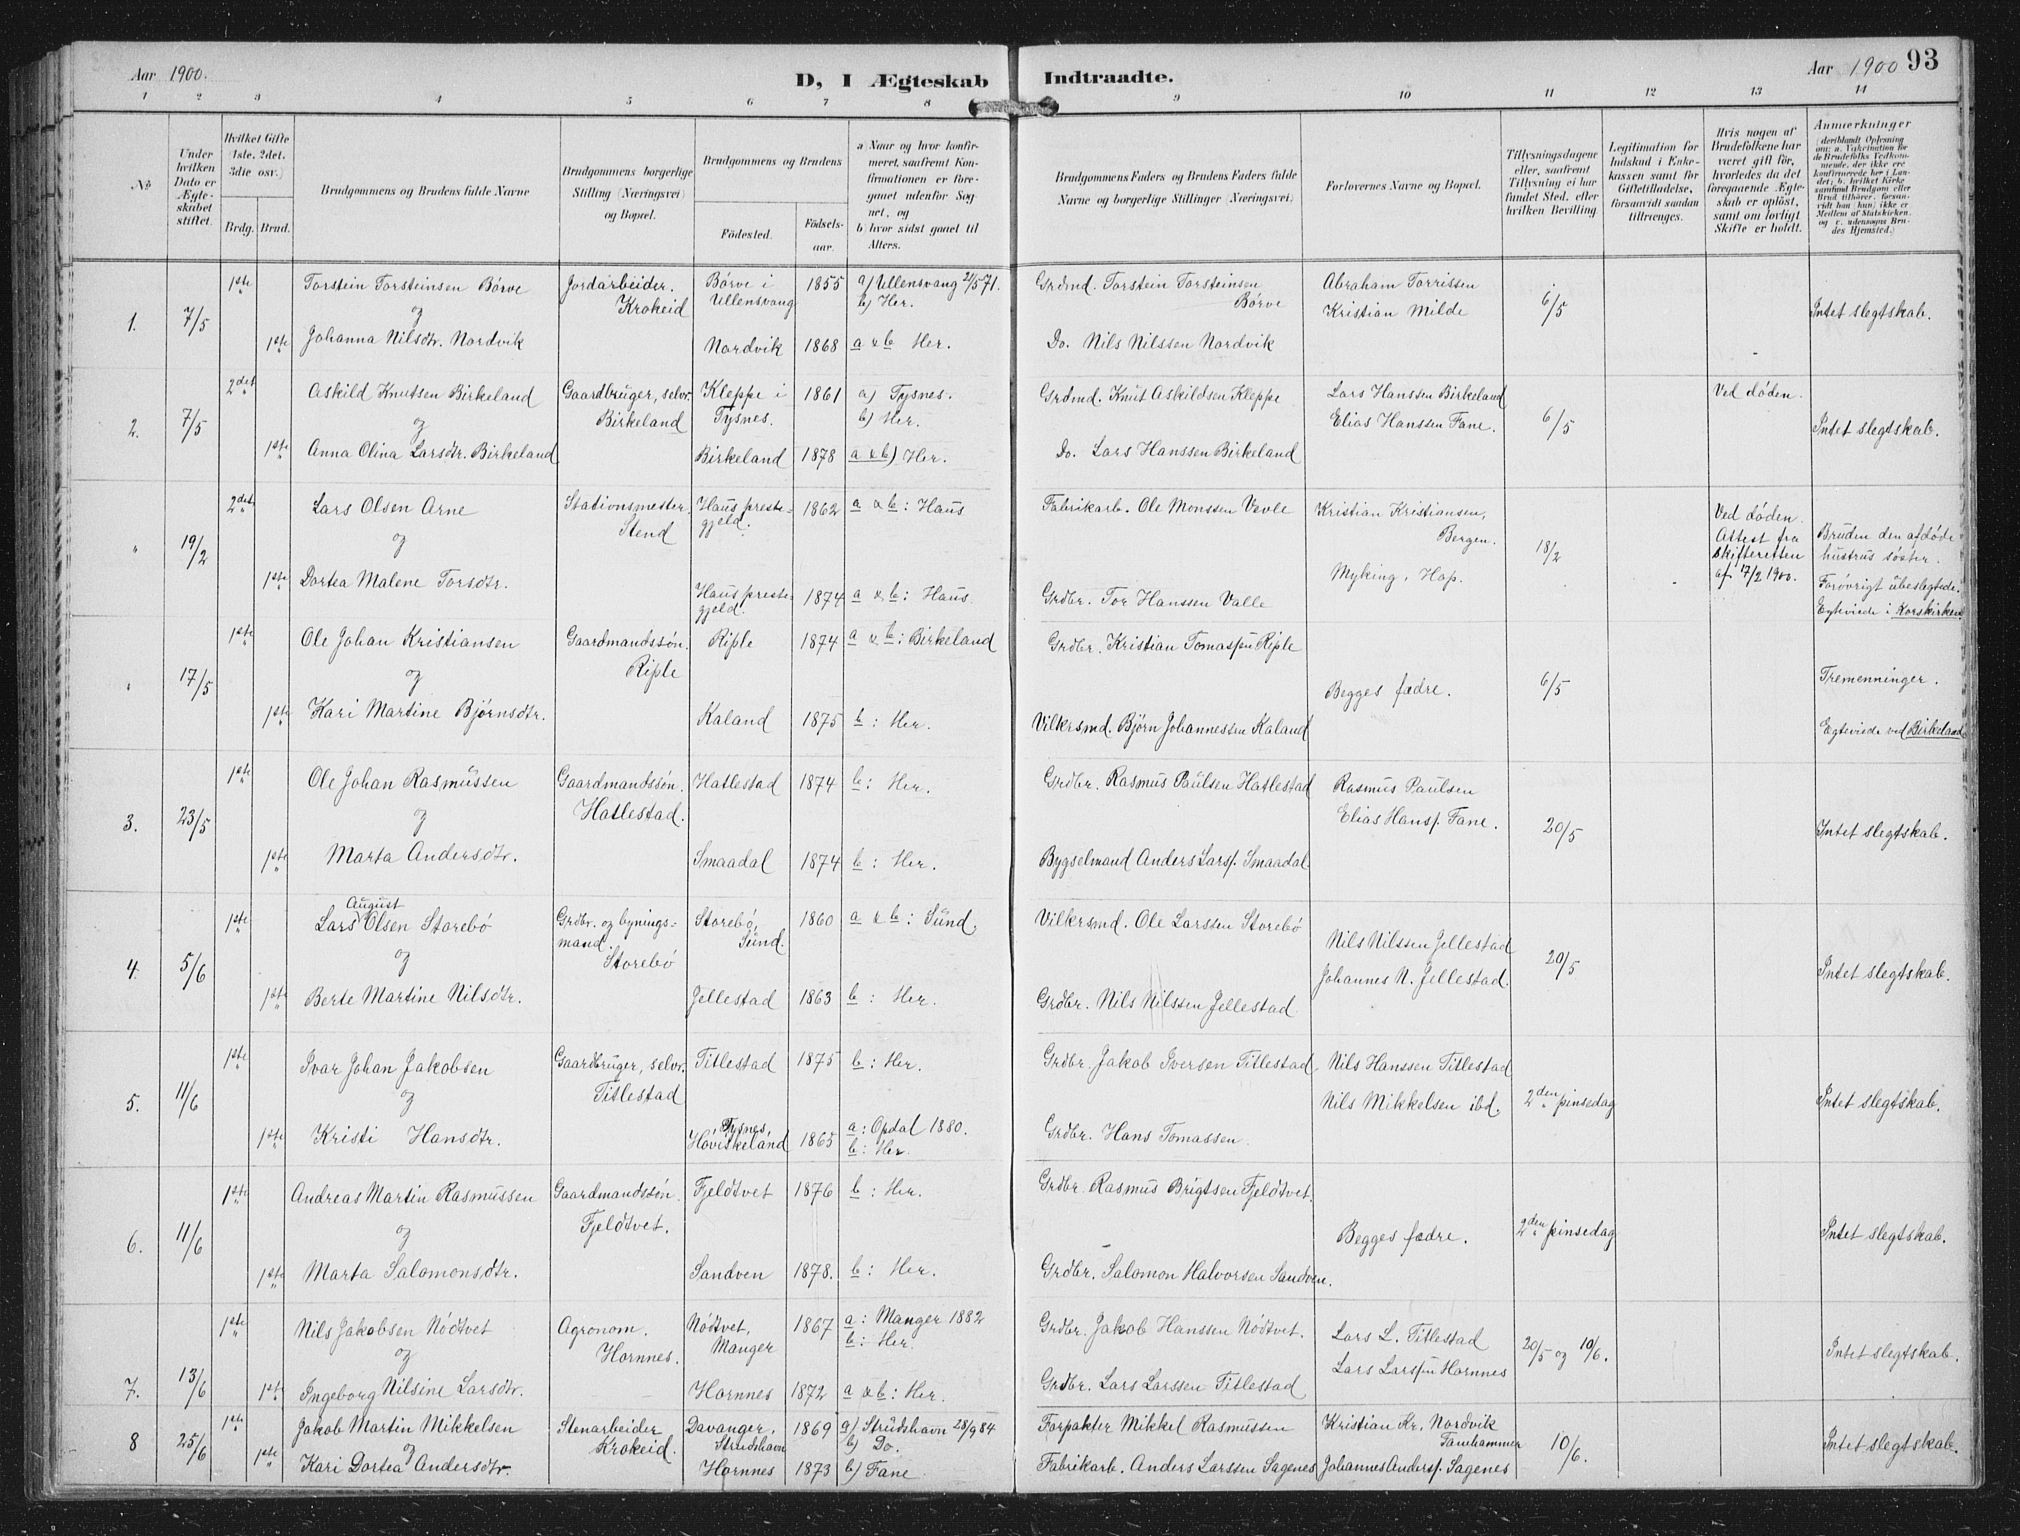 Aar 1900.
D, I Ægteskab Indtraadte.
Aar 1900 93
1 2 3 4 5 6 7 8 9 10 11 12 13 14
No
Under hvilken Dato er Ægteskabet stiftet.
Hvilket Gifte (1ste, 2det, 3die osv.)
Brdg. Brud.
Brudgommens og Brudens fulde Navne
Brudgommens borgerlige Stilling (Næringsvei) og Bopæl.
Brudgommens og Brudens
Fødested.
Fødselsaar.
a Naar og hvor konfirmeret, saafremt Konfirmationen er foregaaet udenfor Sognet, og
b hvor sidst gaaet til Alters.
Brudgommens Faders og Brudens Faders fulde Navne og borgerlige Stillinger (Næringsvei)
Forlovernes Navne og Bopæl.
Tillysningsdagene eller, saafremt Tillysning ei har fundet Sted, efter hvilken Bevilling.
Legitimation for Indskud i Enkekassen samt for Giftetilladelse, forsaavidt saadan tiltrænges.
Hvis nogen af Brudefolkene har været gift før, hvorledes da det foregaaende Ægteskab er opløst, samt om lovligt Skifte er holdt.
Anmærkninger
(deriblandt Oplysning om: a. Vakcination for de Brudefolks Vedkommende, der ikke ere konfirmerede her i Landet; b. hvilket Kirkesamfund Brudgom eller Brud tilhører, forsavidt han (hun) ikke er Medlem af Statskirken og c. udensogns Brudes Hjemsted.)
1. 7/5 1ste Torstein Torsteinsen Börve Jordarbeider. Krokeid Börve i Ullensvang 1855 a) Ullensvang 21/5 71. b) Her. Grdmd. Torstein Torsteinsen Börve Abraham Torrissen 6/5 Intet slegtskab.
og Kristian Milde
1ste Johanna Nilsdtr. Nordvik Nordvik 1868 a & b Her. Do. Nils Nilssen Nordvik
2. 7/5 2det Askild Knutsen Birkeland Gaardbruger, selv. Birkeland Kleppe i Tysnes. 1861 a) Tysnes. b) Her. Grdmd. Knut Askildsen Kleppe Lars Hanssen Birkeland 6/5 Ved döden. Intet slegtskab.
og Elias Hanssen Fane.
1ste Anna Olina Larsdtr. Birkeland Birkeland 1878 a & b) Her. Do. Lars Hanssen Birkeland
" 19/2 2det Lars Olsen Arne Stationsmester. Stend Haus prestegjeld. 1862 a & b: Haus Fabrikarb. Ole Monssen Vevle Kristian Kristiansen, Bergen. 18/2 Ved döden. Attest fra skifteretten af 17/2 1900. Bruden den afdöde hustrus söster. Forövrigt ubeslegtede. Egteviede i Korskirken
og Myking, Hop.
1ste Dortea Malene Torsdtr. Haus prestegjeld. 1874 a & b: Haus. Grdbr. Tor Hanssen Valle
" 17/5 1ste Ole Johan Kristiansen Gaardmandssön. Riple Riple 1874 a & b: Birkeland Grdbr. Kristian Tomassen Riple 6/5 Tremenninger.
og Begges fædre.
1ste Kari Martine Bjørnsdtr. Kaland 1875 b: Her. Vilkersmd. Bjørn Johannessen Kaland Egteviede ved Birkeland
3. 23/5 1ste Ole Johan Rasmussen Gaardmandssön. Hatlestad. Hatlestad 1874 b: Her. Grdbr. Rasmus Paulsen Hatlestad Rasmus Paulsen 20/5 Intet slegtskab.
og Elias Hanss. Fane.
1ste Marta Andersdtr. Smaadal 1874 b: Her. Bygselmand Anders Larss. Smaadal
4. 5/6 1ste Lars August Olsen Storebö Grdbr. og bygningsmand. Storebö Storebö, Sund. 1860 a & b: Sund. Vilkersmd. Ole Larssen Storebö Nils Nilssen Jellestad 20/5 Intet slegtskab.
og Johannes N. Jellestad.
1ste Berte Martine Nilsdtr. Jellestad 1863 b: Her. Grdbr. Nils Nilssen Jellestad
5. 11/6 1ste Ivar Johan Jakobsen Gaardbruger, selv. Titlestad Titlestad 1875 b: Her. Grdbr. Jakob Iversen Titlestad, Nils Hanssen Titlestad 2den pinsedag Intet slegtskab.
og Nils Mikkelsen ibd.
1ste Kristi Hansdtr. Tysnes, Hoviskeland 1865 a: Opdal 1880. b: Her. Grdbr. Hans Tomassen.
6. 11/6 1ste Andreas Martin Rasmussen Gaardmandssön. Fjeldtvet. Fjeldtvet 1876 b: Her. Grdbr. Rasmus Brigtsen Fjeldtvet. 2den pinsedag Intet slegtskab.
og Begges fædre.
1ste Marta Salomonsdtr. Sandven 1878. b: Her. Grdbr. Salomon Halvorsen Sandven.
7. 13/6 1ste Nils Jakobsen Nödtvet Agronom. Hornnes. Nödtvet, Manger 1867 a: Manger 1882 b: Her. Grdbr. Jakob Hanssen Nödtvet. Lars L. Titlestad 20/5 og 10/6. Intet slegtskab.
og Lars Larssen Hornnes
1ste Ingeborg Nilsine Larsdtr. Hornnes 1872 a & b: Her. Grdbr. Lars Larssen Titlestad
8 25/6 1ste Jakob Martin Mikkelsen Stenarbeider Krokeid. Davanger, Strudshavn 1869 a) Strudshavn 28/9 84 b) Do. Forpakter Mikkel Rasmussen Kristian Kr. Nordvik Fanehammer 10/6. Intet slegtskab.
og
1ste Kari Dortea Andersdtr. Hornnes 1873 b) Fane Fabrikarb. Anders Larssen Sagenes Johannes Anderss. Sagenes